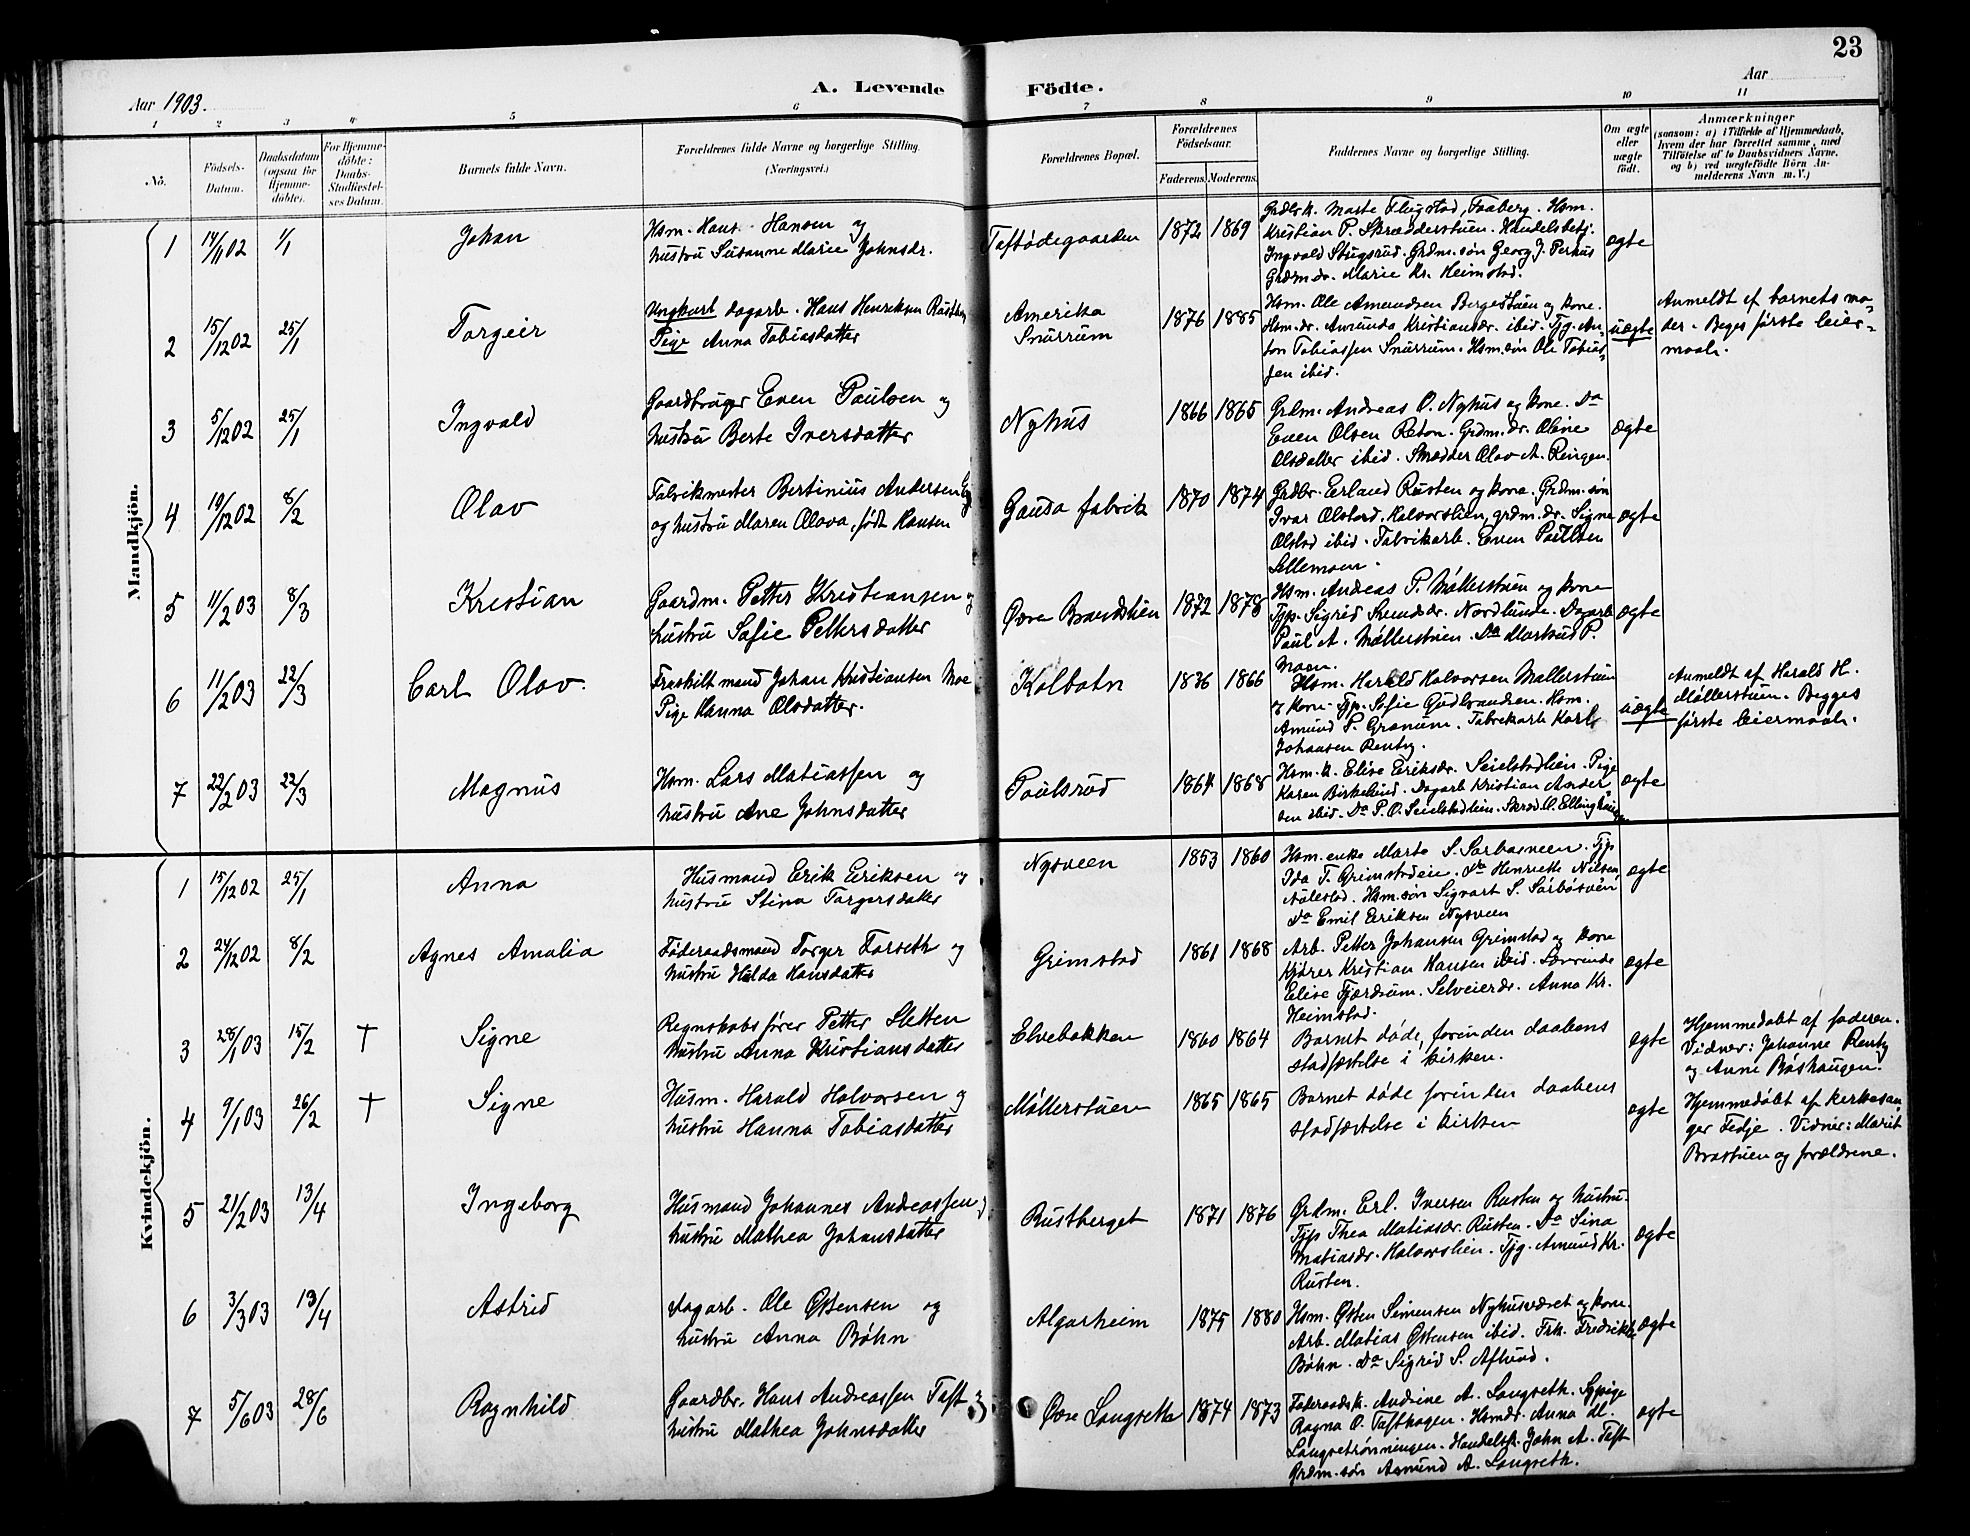 23
Aar 1903.
A. Levende Födte.
Aar
1 2 3 4 5 6 7 8 9 10 11
No.
Födsels-
Datum.
Daabsdatum
(ogsaa for
Hjemme-
döbte).
For Hjemme-
döbte:
Daabs-
Stadfæstel-
ses Datum.
Barnets fulde Navn.
Forældrenes fulde Navne og borgerlige Stilling.
(Næringsvei.)
Forældrenes Bopæl.
Forældrenes
Födselsaar.
Faderens. Moderens.
Faddernes Navne og borgerlige Stilling.
Om ægte
eller
uægte
födt.
Anmærkninger
(saasom: a) i Tilfælde af Hjemmedaab,
hvem der har forrettet samme, med
Tilföielse af to Daabsvidners Navne.
og b) ved uægtefödte Börn An-
melderens Navn m. V.)
Mandkjön.
1 14/11 02 1/1 Johan
Hsm. Hans Hansen og
hustru Susanne Marie Johnsdr.
Taftødegaarden 1872 1869
Grdbrk. Marte Flugstad, Faaberg. Hsm.
Kristian P. Skrædderstuen. Handelsbetj.
Ingvald Stugsrud. Grdm. søn Georg J. Perhus
Grdm. dr. Marie Kr. Heimstad.
ægte
2 15/12 02 25/1 Torgeir
Ungkarl dagarb. Hans Henriksen Rusten
Pige Anna Tobiasdatter
Amerika
Snurrum
1876 1885
Hsm. Ole Amundsen Bergestuen og kone.
Hsm. dr. Amunda Kristiansdr. ibid. Tjg. An-
ton Tobiassen Snurrum. Hsm. søn Ole Tobias-
sen ibid.
uægte
Anmeldt af barnets mo-
der. Beges første leier-
maal.
3 5/12 02 25/1 Ingvald
Gaardbruger Even Paulsen og
hustru Berte Iversdatter
Nyhus 1866 1865
Grdm. Andreas O. Nyhus og kone. Do
Even Olsen Reton. Grdm. dr. Oline
Olsdatter ibid. Skrædder Olav A. Ringen.
ægte
4 19/12 02 8/2 Olav
Fabrikmester Bertinius Andersen
og hustru Maren Olava, født Hansen
Gausa fabrik 1870 1874
Grdbr. Erland Rusten og kone. Grdm. søn
Ivar Olstad. Halvorslien, grdm. dr. Signe
Olstad ibid. Fabrikarb. Even Paulsen
Sellemoen.
ægte
5 11/2 03 8/3 Kristian
Gaardm. Petter Kristiansen og
hustru Sofie Pettersdatter
Øvre Brandslien 1872 1878
Hsm. Andreas P. Møllerstuen og kone
Tjp. Sigrid Svendsdr. Nordlunde. Dagarb.
Paul A. Møllerstuen. Do Martinus P.
Moen.
ægte
6 11/2 03 22/3 Carl Olav.
Fraskilt mand Johan Kristiansen Moe
Pige Hanna Olsdatter.
Kolbotn 1836 1866
Hsm. Harald Halvorsen Møllerstuen
og kone. Tjp. Sofie Gudbrandsen. Hsm.
Amund P. Granum. Fabrikarb. Karl
Johansen Rentz.
uægte
Anmeldt af Harald H.
Møllerstuen. Begges
første leiermaal.
7 22/2 03 22/3 Magnus
Hsm. Lars Matiassen og
hustru Ane Johnsdatter
Paulsrud 1864 1868
Hsm. k. Elise Eriksdr. Seielstadlien. Pige
Karen Birkelund. Dagarb. Kristian Ander
sen ibid. Do P. O. Seielstadlien. Skræd. O. Ellinghaugen
ægte
Kvindekjön.
1 15/12 02 25/1 Anna
Husmand Erik Eriksen og
hustru Stina Torgersdatter
Nysveen 1853 1860
Hsm. enke Marte S. Sørbøsveen. Tjp
Ida T. Grimstadeie. Do Henriette Nielsen,
Aulestad. Hsm. søn Sigvart S. Sørbøsveen
Do Emil Eriksen Nysveen
ægte
2 24/12 02 8/2 Agnes Amalia
Føderaadsmand Torger Forseth og
hustru Hilda Hansdatter
Grimstad 1861 1868
Arb. Petter Johansen Grimstad og kone
Kjører Kristian Hansen ibid. Lærerinde
Elise Fjærdrum. Selveierdr. Anna Kr.
Heimstad.
ægte
3 28/1 03 15/2 † Signe
Regnskabsfører Petter Sletten
hustru Anna Kristiansdatter
Elvebakken 1860 1864
Barnet døde, forinden daabens
stadfæstelse i kirken.
ægte
Hjemmedøbt af faderen.
Vidner: Johanne Rentz
og Anne Bøshaugen.
4 9/1 03 26/2 † Signe
Husm. Harald Halvorsen og
hustru Hanna Tobiasdatter
Møllerstuen 1865 1865
Barnet døde forinden daabens
stadfæstelse i kirken
ægte
Hjemmedøbt af kirkesan
ger Fedje. Vidner: Marit
Brastuen og forældrene.
5 21/2 03 13/4 Ingeborg
Husmand Johannes Andreassen og
hustru Mathea Johansdatter
Rustberget 1871 1876
Grdm. Erl. Iversen Rusten og hustru.
Tjp Thea Matiasdr. Rusten. Do Sina
Matiasdr. Halvorslien. Tjg. Amund Kr.
Rusten.
ægte
6 3/3 03 13/4 Astrid
Dagarb. Ole Østensen og
hustru Anna Bøhn
Algarheim 1875 1880
Hsm. Østen Simensen Nyhusværet og kone.
Arb. Matias Østensen ibid. Frk. Fredrikke
Bøhn. Do Sigrid S. Aflund.
ægte
7 5/6 03 28/6 Ragnhild
Gaardbr. Hans Andreassen Taft
hustru Mathea Johnsdatter
Øvre Langseth 1874 1873
Føderaadsk. Andrine A. Langseth. Sypige
Ragna O. Tafthagen. Hsmdr. Anna M.
Langsetrønningen. Handelsk. John A. Taft
Grdm. søn Asmund A. Langseth.
ægte